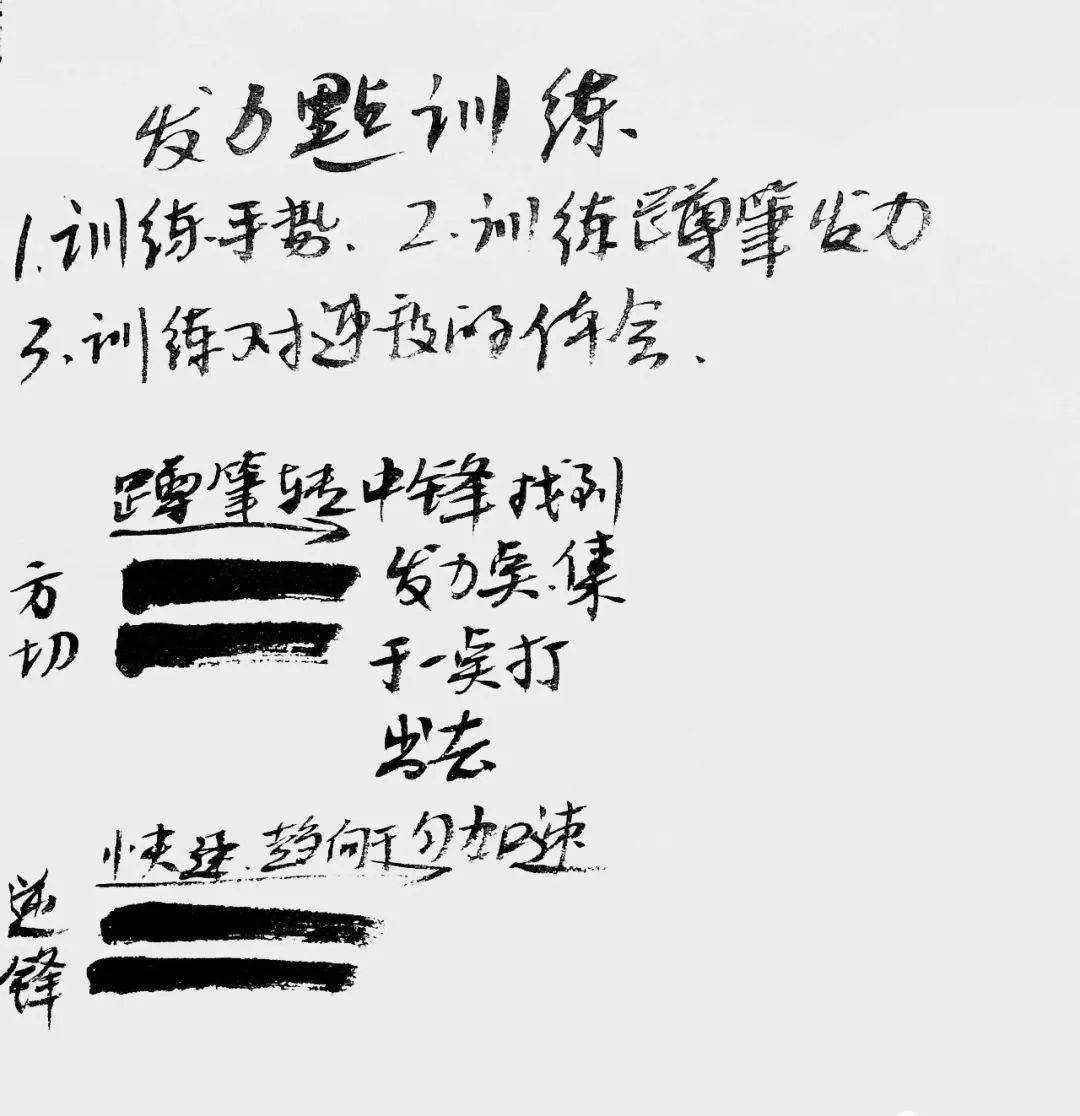 发力點训练
1.训练手势.2.训练蹲筆发力
3.训练对速度的体会.
蹲筆转中锋找到
发力点.集
于一点打
出去
方切
快速.趋向于匀加速
逆锋